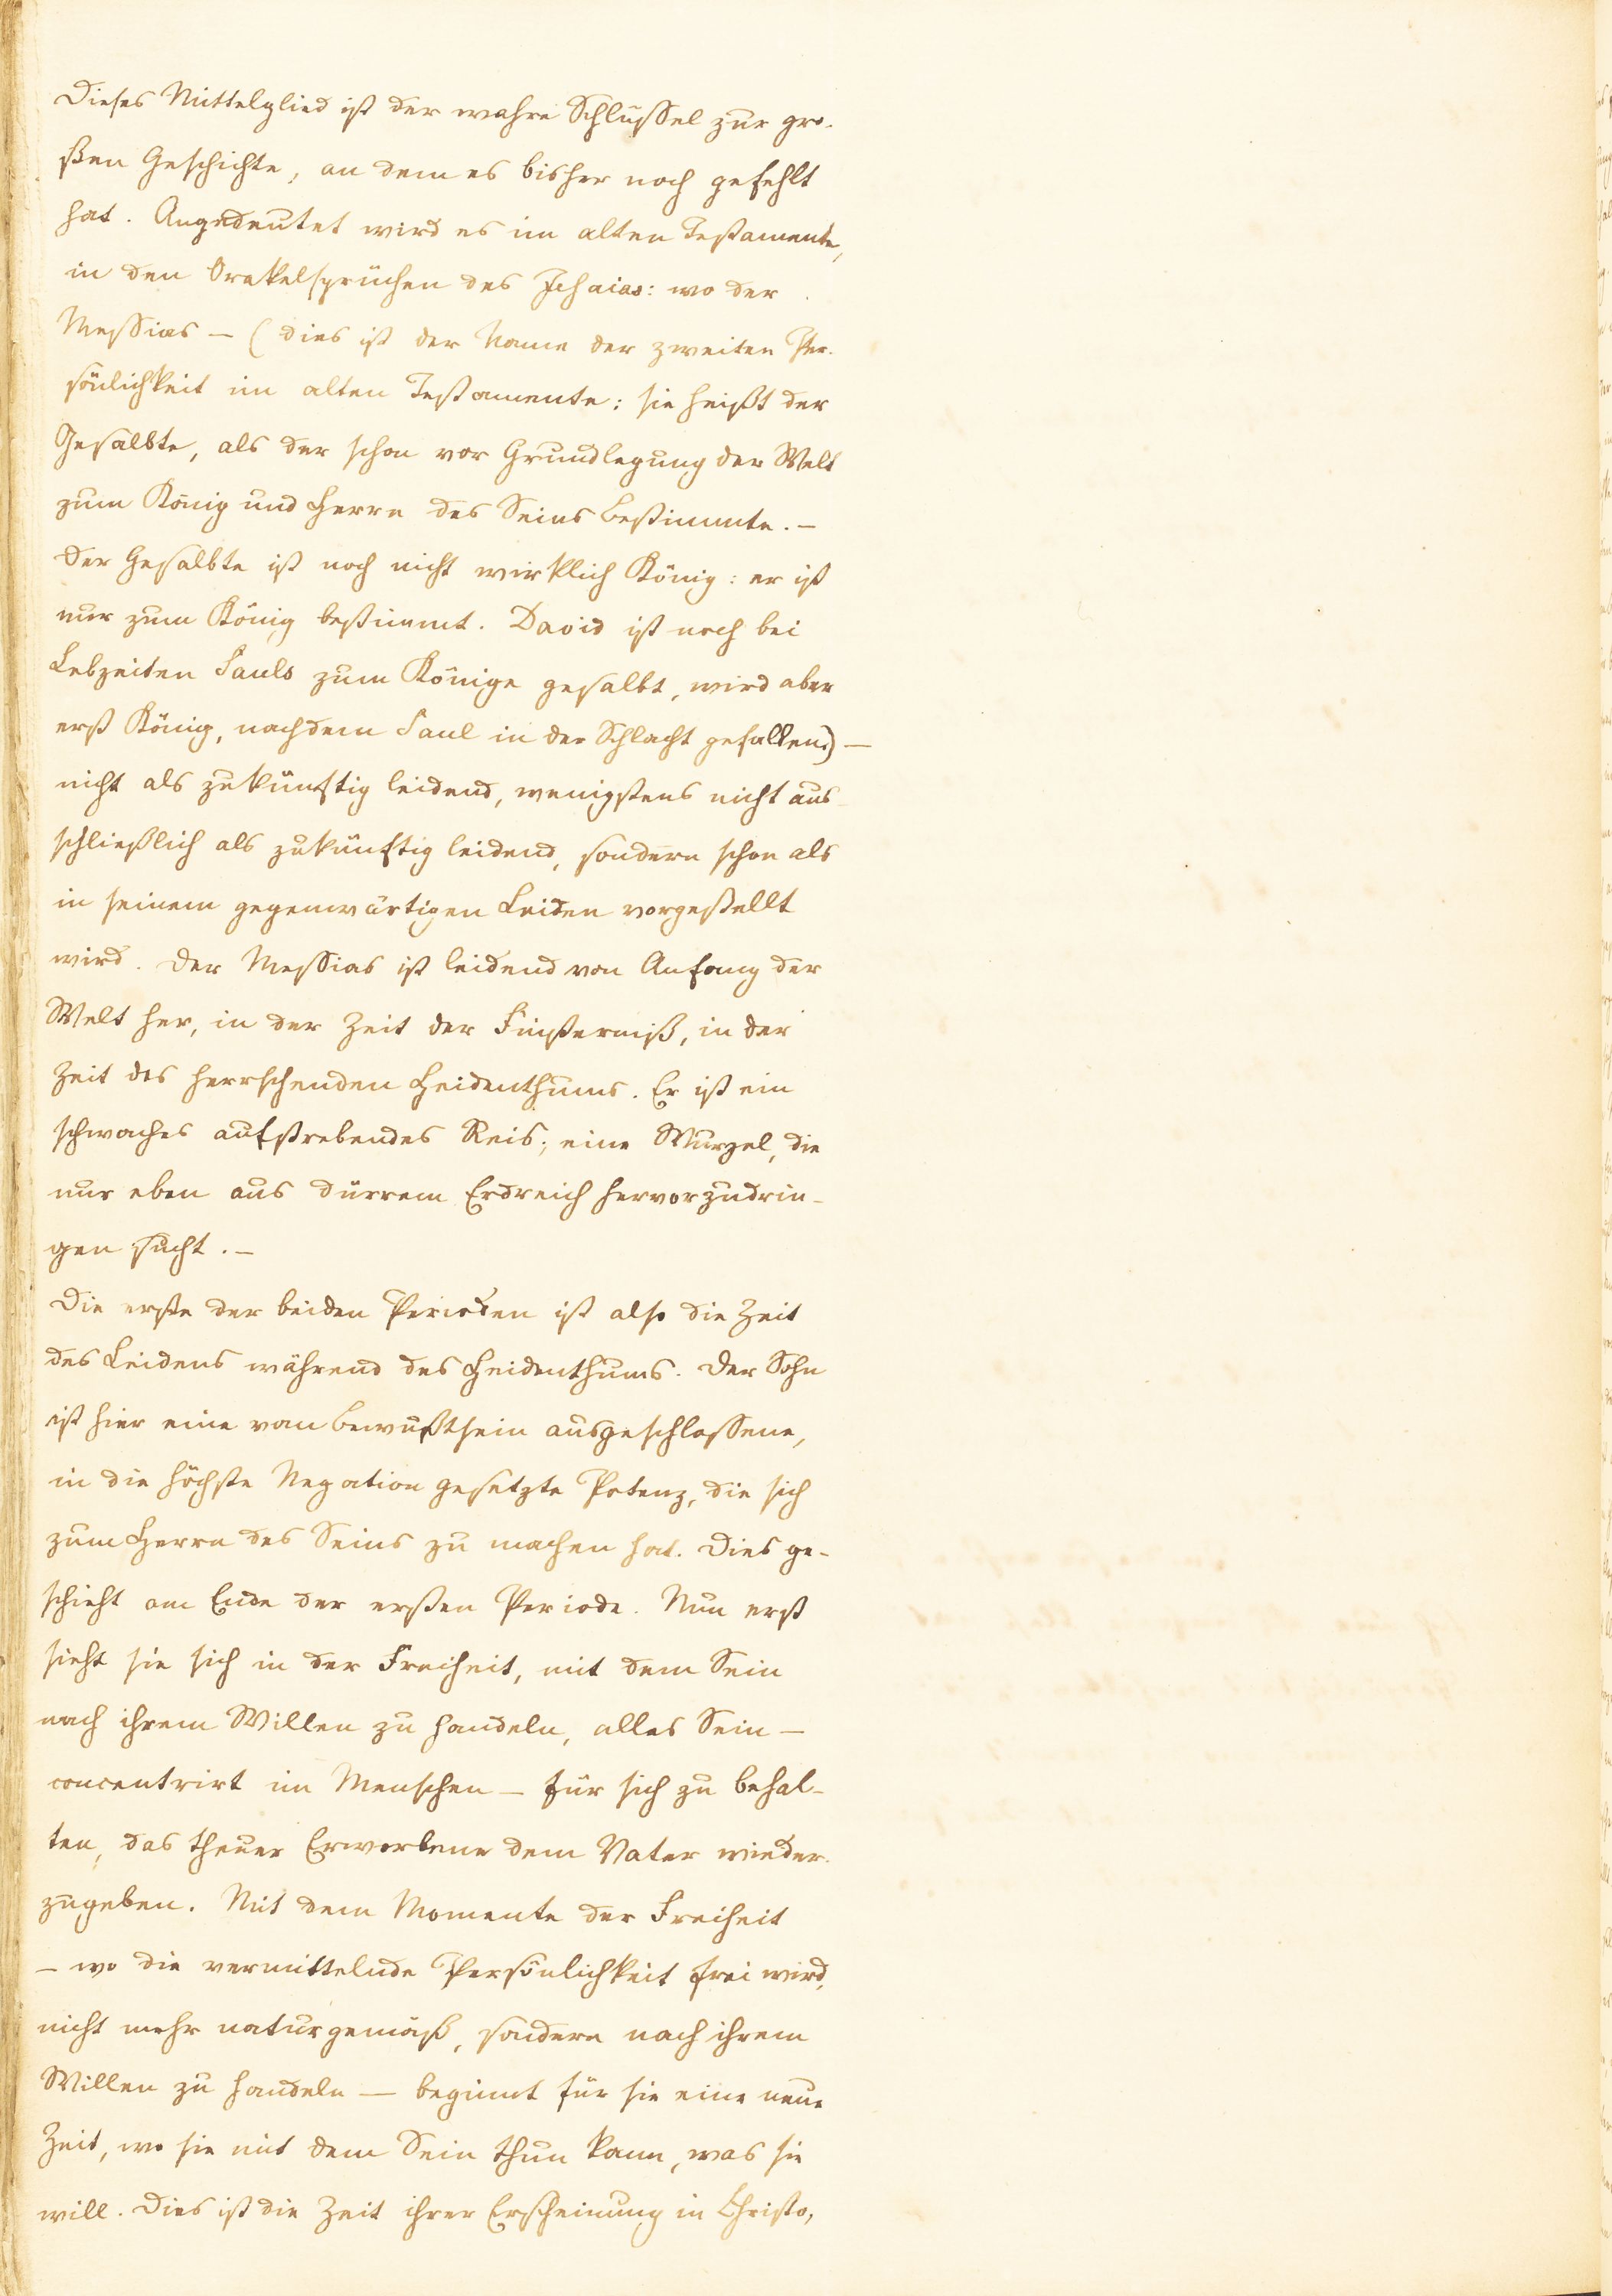 Dieses Mittelglied ist der wahre Schlüssel zur gro-
ßen Geschichte, an dem es bisher noch gefehlt
hat. Angedeutet wird es im alten Testamente,
in den Orakelsprüchen des Jesaias: wo der
Messias – (dies ist der Name der zweiten Per-
sönlichkeit im alten Testamente: sie heißt der
Gesalbte, als der schon vor Grundlegung der Welt
zum König und Herrn des Seins bestimmte. –
Der Gesalbte ist noch nicht wirklich König: er ist
nur zum König bestimmt. David ist noch bei
Lebzeiten Sauls zum Könige gesalbt, wird aber
erst König, nachdem Saul in der Schlacht gefallen.) –
nicht als zukünftig leidend, wenigstens nicht aus-
schließlich als zukünftig leidend, sondern schon als
in seinem gegenwärtigen Leiden vorgestellt
wird. Der Messias ist leidend von Anfang der
Welt her, in der Zeit der Finsterniß, in der
Zeit des herrschenden Heidenthums. Er ist ein
schwaches aufstrebendes Reis; eine Wurzel, die
nur eben aus dürrem Erdreich hervorzudrin-
gen sucht. –
Die erste der beiden Perioden ist also die Zeit
des Leidens während des Heidenthums. Der Sohn
ist hier eine vom Bewußtsein ausgeschlossene,
in die höchste Negation gesetzte Potenz, die sich
zum Herrn des Seins zu machen hat. Dies ge-
schieht am Ende der ersten Periode. Nun erst
sieht sie sich in der Freiheit, mit dem Sein
nach ihrem Willen zu handeln, alles Sein –
concentrirt im Menschen – für sich zu behal-
ten, das theuer Erworbene dem Vater wieder-
zugeben. Mit dem Momente der Freiheit
– wo die vermittelnde Persönlichkeit frei wird,
nicht mehr naturgemäß, sondern nach ihrem
Willen zu handeln – beginnt für sie eine neue
Zeit, wo sie mit dem Sein thun kann, was sie
will. Dies ist die Zeit ihrer Erscheinung in Christo,